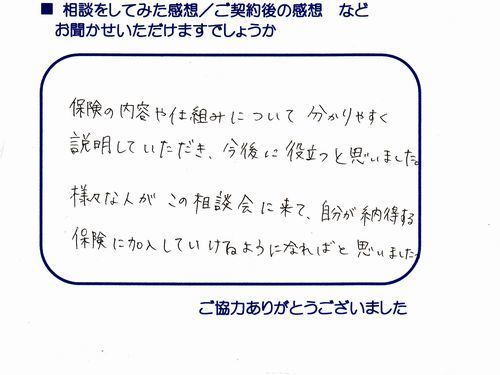 ■ 相談をしてみた感想／ご契約後の感想　など
お聞かせいただけますでしょうか
保険の内容や仕組みについて 分かりやすく
説明していただき、今後に役立つと思いました。
様々な人が この相談会に来て、自分が納得する
保険に加入していけるようになればと 思いました。
ご協力ありがとうございました